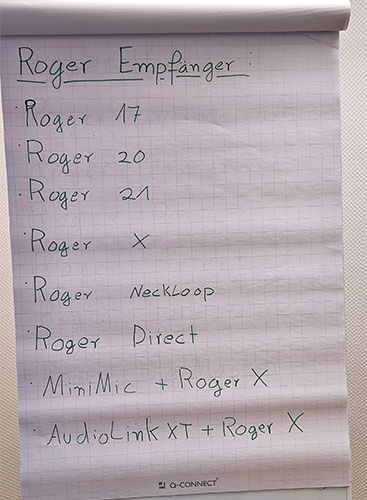 Roger Empfänger:
· Roger 17
· Roger 20
· Roger 21
· Roger X
· Roger NeckLoop
· Roger Direct
· MiniMic + Roger X
· AudioLink XT + Roger X
Q-CONNECT®